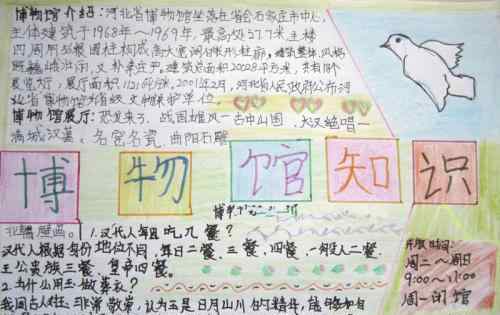 博物馆介绍:河北省博物馆坐落在省会石家庄市中心,
主体建筑于1968年~1969年,最高处27.7米,主楼
四周用列柱围柱构成高大宽阔
庄重。建筑总面积20028平方米,
展览厅,展厅面积 2001年2月,河北省人民政府公布河
北省博物馆为省级文物保护单位。
博物馆展厅:恐龙来了、战国雄风—古中山国、大汉绝唱—
满城汉墓、名窑名瓷、曲阳石雕
博物馆知识
北朝壁画。1.汉代人每日吃几餐?
汉代人根据身份地位不同,每日二餐、三餐、四餐,一般人二餐、
王公贵族三餐、皇帝四餐。
2.为什么用玉做葬衣?
我国古人对玉非常敬崇,认为玉是日月山川的精华,能够
开放时间:
周二~周日
9:00~
周一闭馆